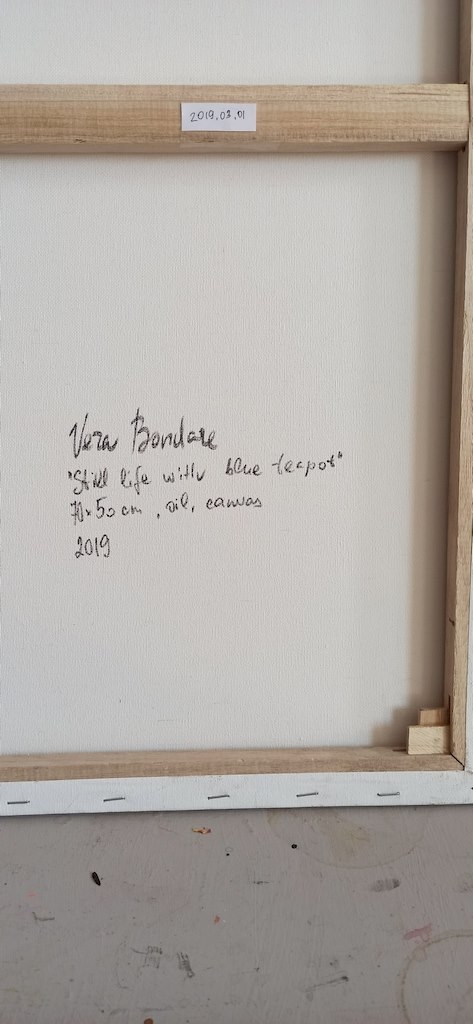 2019.03.01
Vera Bondare
"Still life with blue teapot"
70x50 cm, oil, canvas
2019